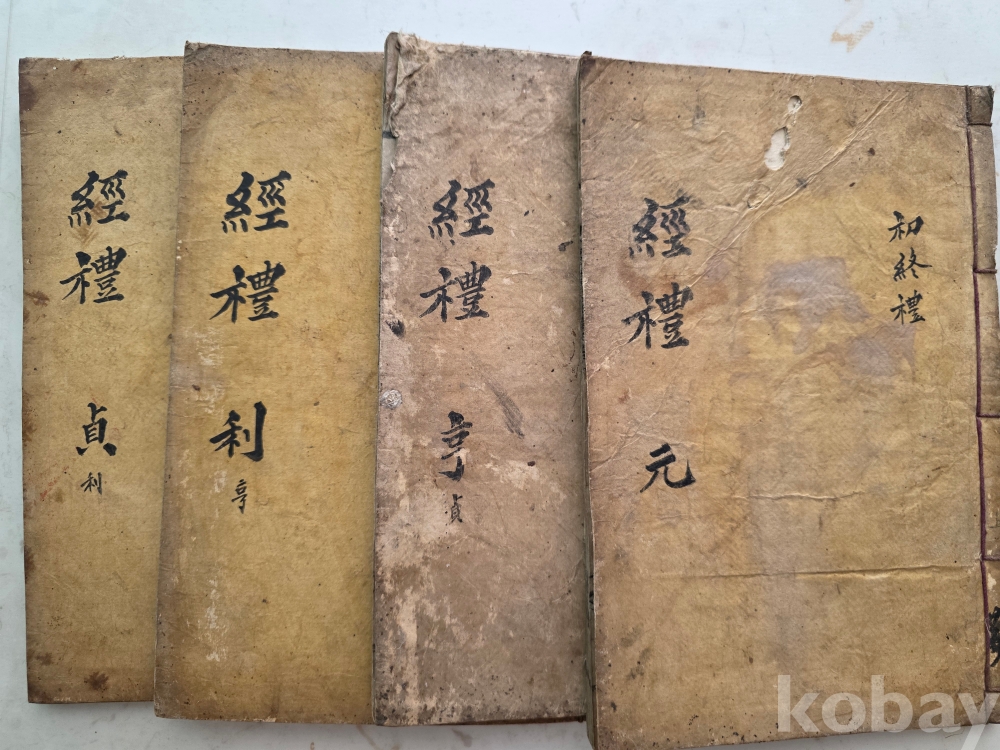 經禮 元
初終禮
經禮 亨
貞
經禮 利
亨
經禮 貞
利
kobay